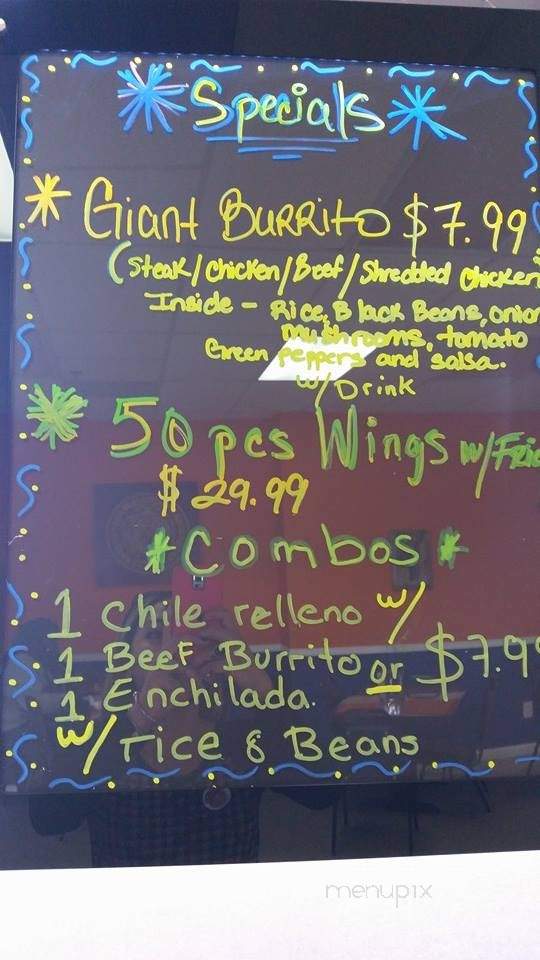 Specials
Giant Burrito $7.99
(Steak/Chicken/Beef/Shredded Chicken
Inside - Rice, Black Beans, onion
mushrooms, tomato
Green peppers and salsa.
w/Drink
50 pcs Wings w/Frie
$29.99
Combos
1 Chile relleno w/
1 Beef Burrito or $7.99
1 Enchilada.
w/rice & Beans
menupix